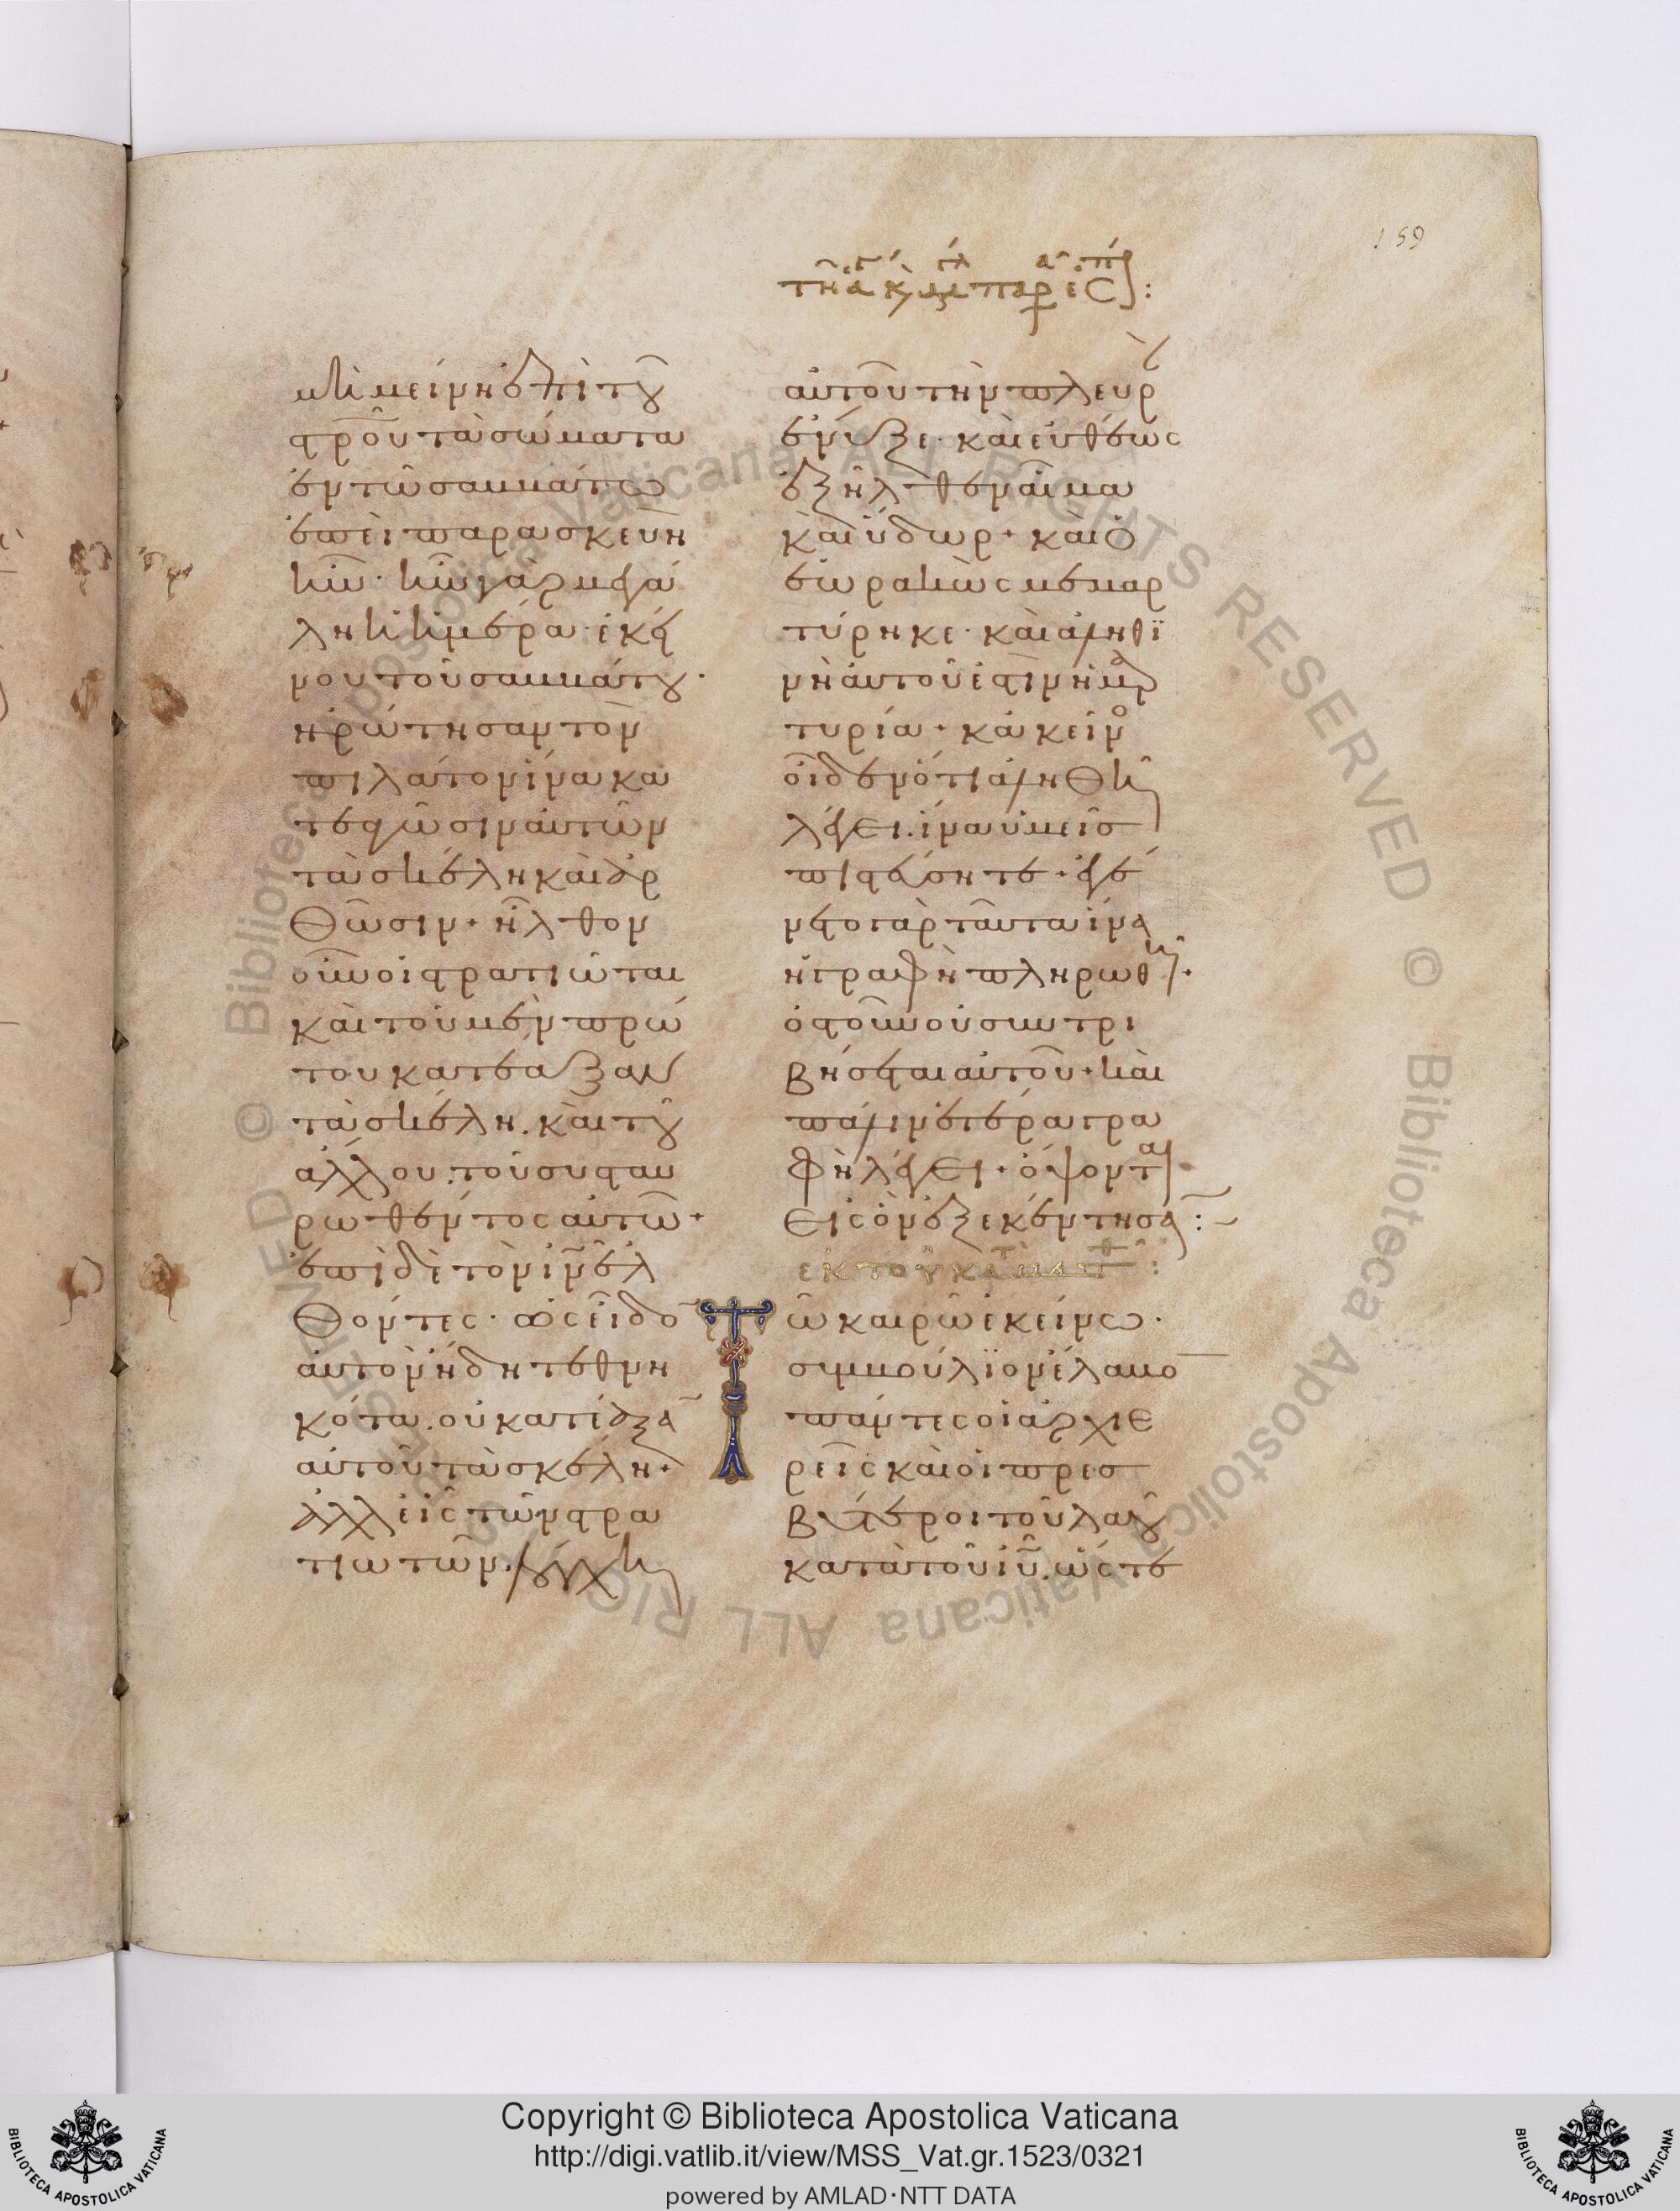 159
μὴ μείνη ἐπὶ τοῦ
σταυροῦ τὰ σώματα
ἐν τῶ σαββάτω
ἐπεὶ παρασκευὴ
ἦν· ἦν γὰρ μεγά
λη ἡ ἡμέρα ἐκεί
νου τοῦ σαββάτου·
ἠρώτησαν τὸν
πιλάτον ἵνα κα
τεαγῶσιν αὐτῶν
τὰ σκέλη καὶ ἀρ
θῶσιν· ἦλθον
οὖν οἱ στρατιῶται
καὶ τοῦ μὲν πρώ
του κατέαξαν
τὰ σκέλη. καὶ τοῦ
ἄλλου. τοῦ συσταυ
ρωθέντος αὐτῶ·
ἐπὶ δὲ τὸν ἰν̅ ἐλ
θόντες· ὡς εἶδο̅
αὐτὸν ἤδη τεθνη
κότα. οὐ κατέαξα̅
αὐτοῦ τὰ σκέλη·
ἀλλ εἷς τῶν στρα
τιωτῶν. λόγχη
αὐτοῦ τὴν πλευρ
ἔνυξε· καὶ εὐθέως
ἐξῆλθεν αἷμα
καὶ ὕδωρ· καὶ ὁ
ἑωρακὼς μεμαρ
τύρηκε· καὶ ἀληθι
νὴ αὐτοῦ ἐστιν ἡ μαρ
τυρία· κακεῖνος
οἶδεν ὅτι ἀληθῆ
λέγει. ἵνα ὑμεῖς
πιστεύσητε· ἐγέ
νετο γὰρ ταῦτα ἵνα
ἡ γραφὴ πληρωθῆ·
ὀστοῦν οὐ συντρι
βήσεται αὐτοῦ· καὶ
πάλιν ἑτέρα γρα
φὴ λέγει· ὄψονται
εἰς ὃν ἐξεκέντησα:
ἐκ τοῦ κατὰ ματθ:
Τῶ καιρῶ ἐκείνω·
συμβούλιον ἔλαβο̅
πάντες οἱ ἀρχιε
ρεῖς καὶ οἱ πρεσ
βύτεροι τοῦ λαοῦ
κατὰ τοῦ ιυ̅. ὥστε
Copyright © Biblioteca Apostolica Vaticana
http://digi.vatlib.it/view/MSS_Vat.gr.1523/0321
powered by AMLAD·NTT DATA
BIBLIOTECA APOSTOLICA VATICANA
BIBLIOTECA APOSTOLICA VATICANA
© Biblioteca Apostolica Vaticana ALL RIGHTS RESERVED © Biblioteca Apostolica Vaticana ALL RIGHTS RESERVED